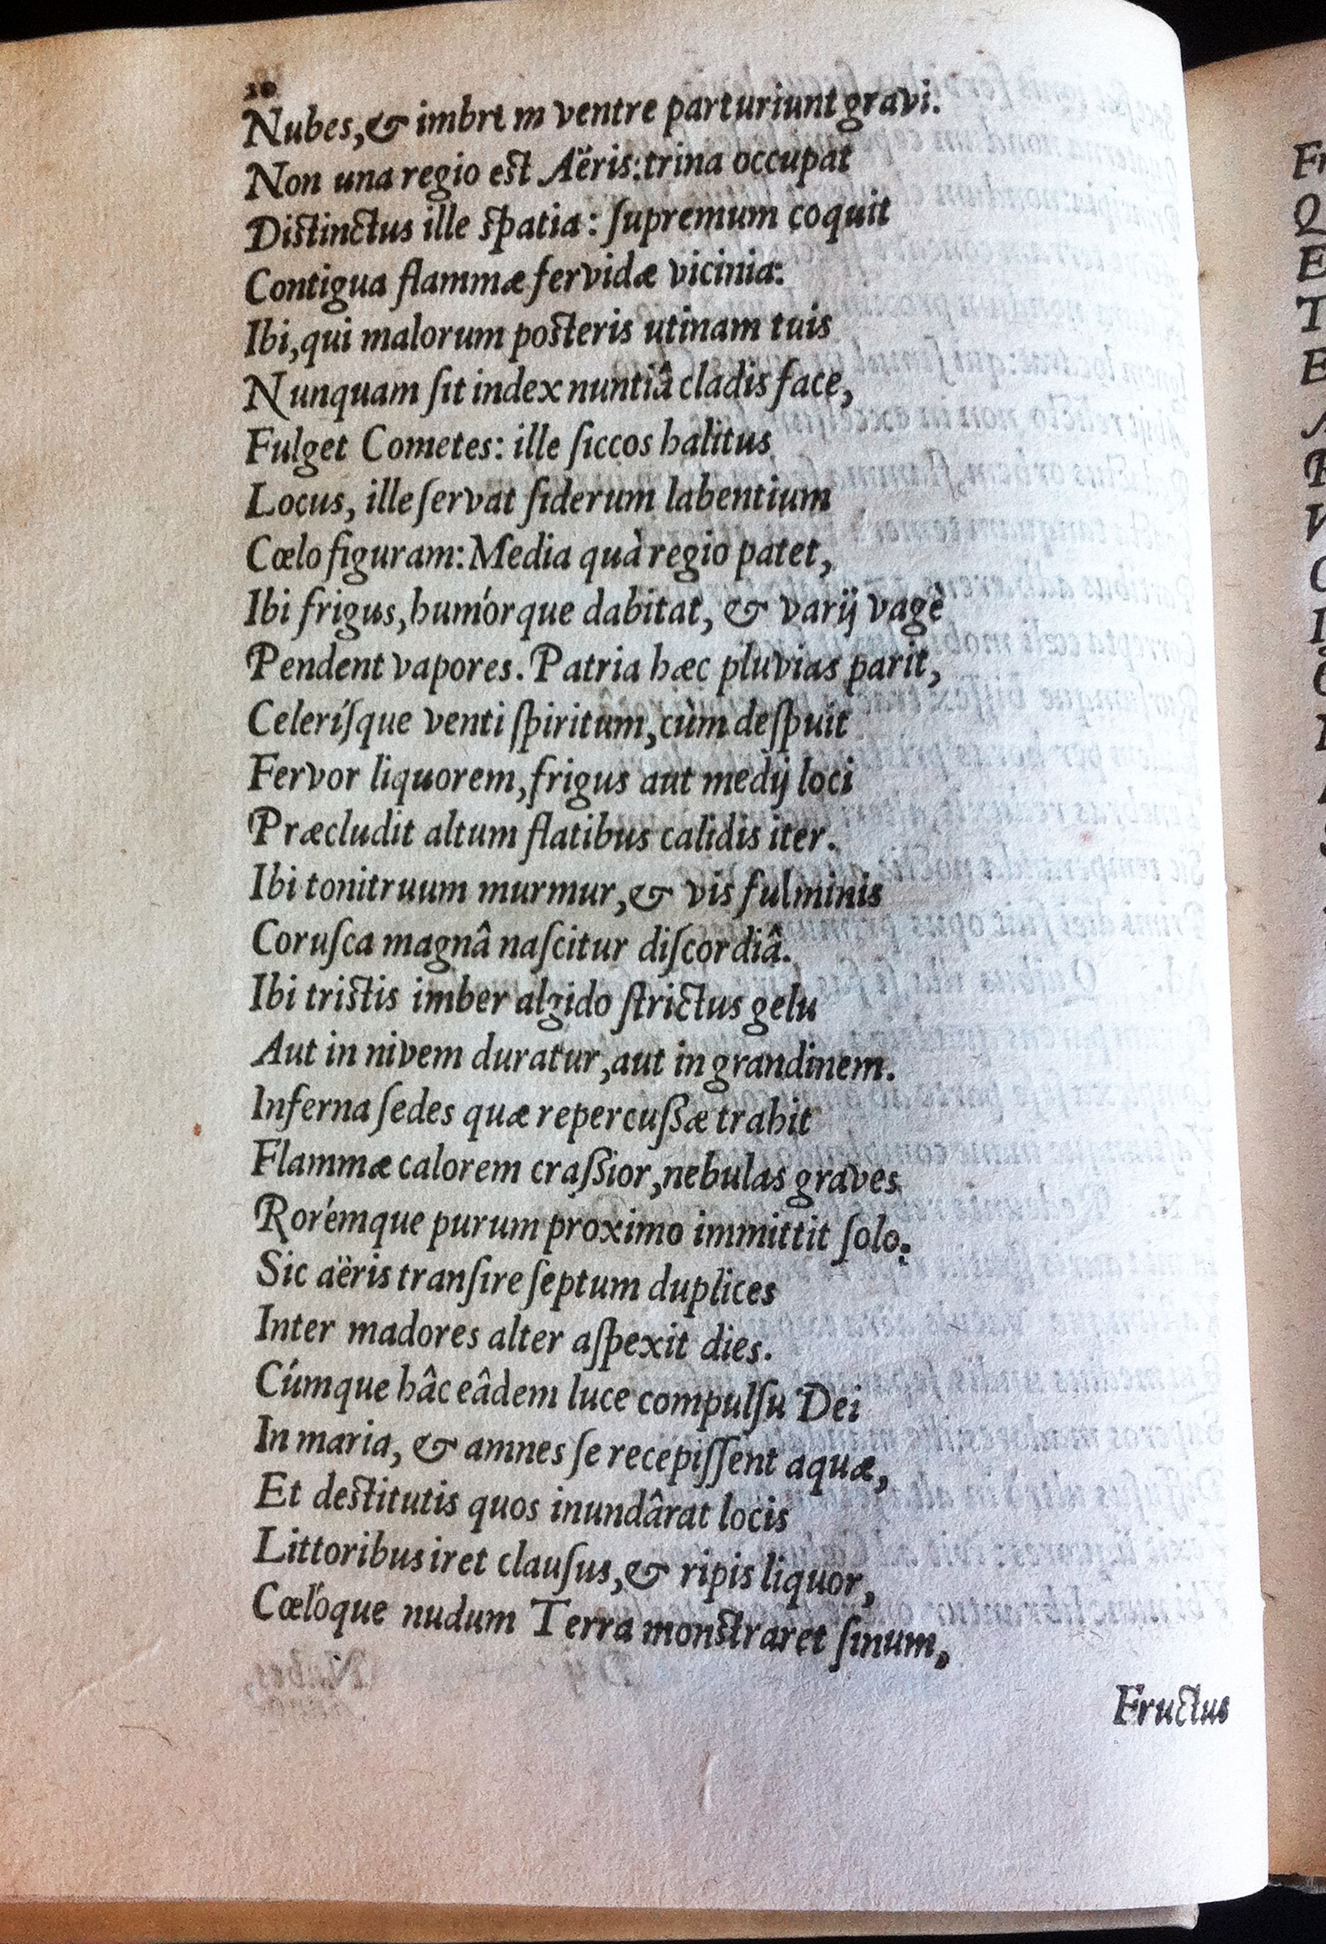 20
Nubes, & imbrem ventre parturiunt gravi.
Non una regio est Aëris: trina occupat
Distinctus ille spatia: supremum coquit
Contigua flammæ fervidæ vicinia:
Ibi, qui malorum posteris utinam tuis
Nunquam sit index nuntiâ cladis face,
Fulget Cometes: ille siccos halitus
Locus, ille servat siderum labentium
Cœlo figuram: Media quà regio patet,
Ibi frigus, humórque dabitat, & varij vagè
Pendent vapores. Patria hæc pluvias parit,
Celerísque venti spiritum, cùm despuit
Fervor liquorem, frigus aut medij loci
Præcludit altum flatibus calidis iter.
Ibi tonitruum murmur, & vis fulminis
Corusca magnâ nascitur discordiâ.
Ibi tristis imber algido strictus gelu
Aut in nivem duratur, aut in grandinem.
Inferna sedes quæ repercussæ trahit
Flammæ calorem crassior, nebulas graves
Rorémque purum proximo immittit solo.
Sic aëris transire septum duplices
Inter madores alter aspexit dies.
Cúmque hâc eâdem luce compulsu Dei
In maria, & amnes se recepissent aquæ,
Et destitutis quos inundârat locis
Littoribus iret clausus, & ripis liquor,
Cœlóque nudum Terra monstraret sinum,
Fructus
Fr
Q
E
T
E